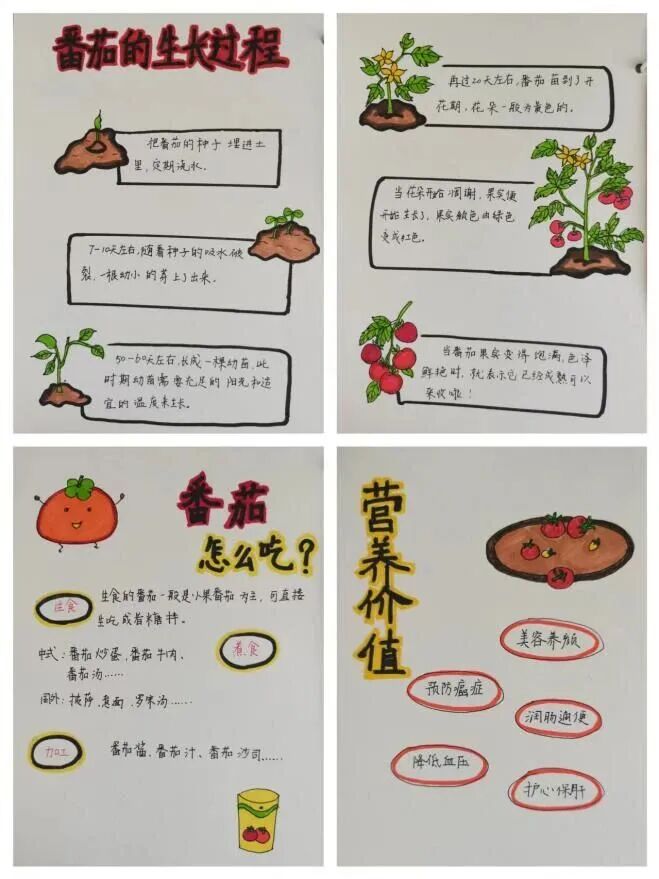 番茄的生长过程
把番茄的种子埋进土
里,定期浇水.
7-10天左右,随着种子的吸水破
裂,一根幼小的芽上了出来.
50-60天左右,长成一棵幼苗,此
时期幼苗需要充足的阳光和适
宜的温度来生长.
再过20天左右,番茄苗到了开
花期,花朵一般为黄色的.
当花朵开始凋谢,果实便
开始生长了,果实颜色由绿色
变成红色.
当番茄果实变得饱满,色泽
鲜艳时,就表示它已经成熟可以
采收啦!
番茄
怎么吃?
生食
生食的番茄一般是小果番茄为主,可直接
生吃或者糖拌.
煮食
中式:番茄炒蛋,番茄牛肉、
番茄汤……
国外:披萨,意面,罗宋汤……
加工
番茄酱、番茄汁、番茄沙司……
营养价值
美容养颜
预防癌症
润肠通便
降低血压
护心保肝